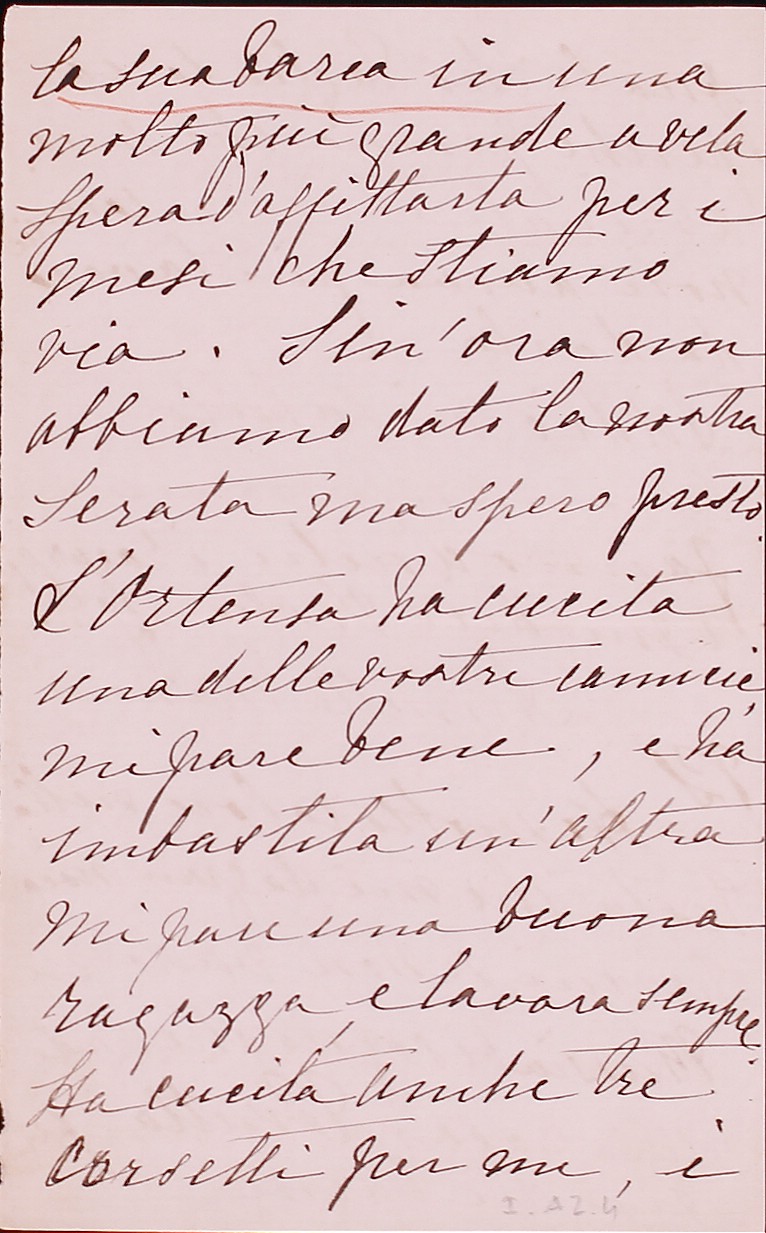 la sua barca in una
molto più grande a vela
spera d'affittarla per i
mesi che stiamo
via. Sin'ora non
abbiamo dato la nostra
serata ma spero presto.
L'Ortensa ha cucita
una delle vostre camicie
mi pare bene, e ha
imbastita un'altra
mi pare una buona
ragazza, e lavora sempre.
Ha cucita anche tre
corsetti per me, i
I.A2.4